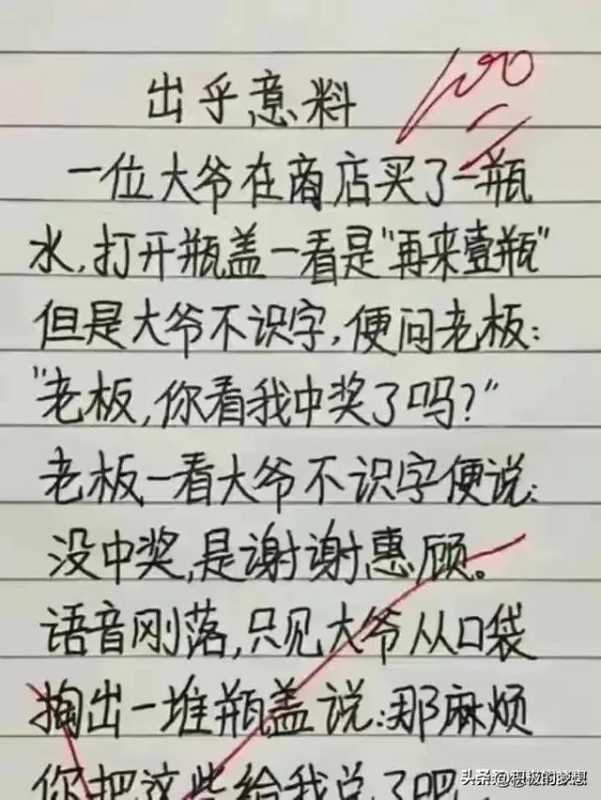 100
出乎意料
一位大爷在商店买了一瓶
水,打开瓶盖一看是"再来壹瓶"
但是大爷不识字,便问老板:
"老板,你看我中奖了吗?"
老板一看大爷不识字便说:
没中奖,是谢谢惠顾。
语音刚落,只见大爷从口袋
掏出一堆瓶盖说:那麻烦
你把这些给我兑了吧
头条@积极的梦想